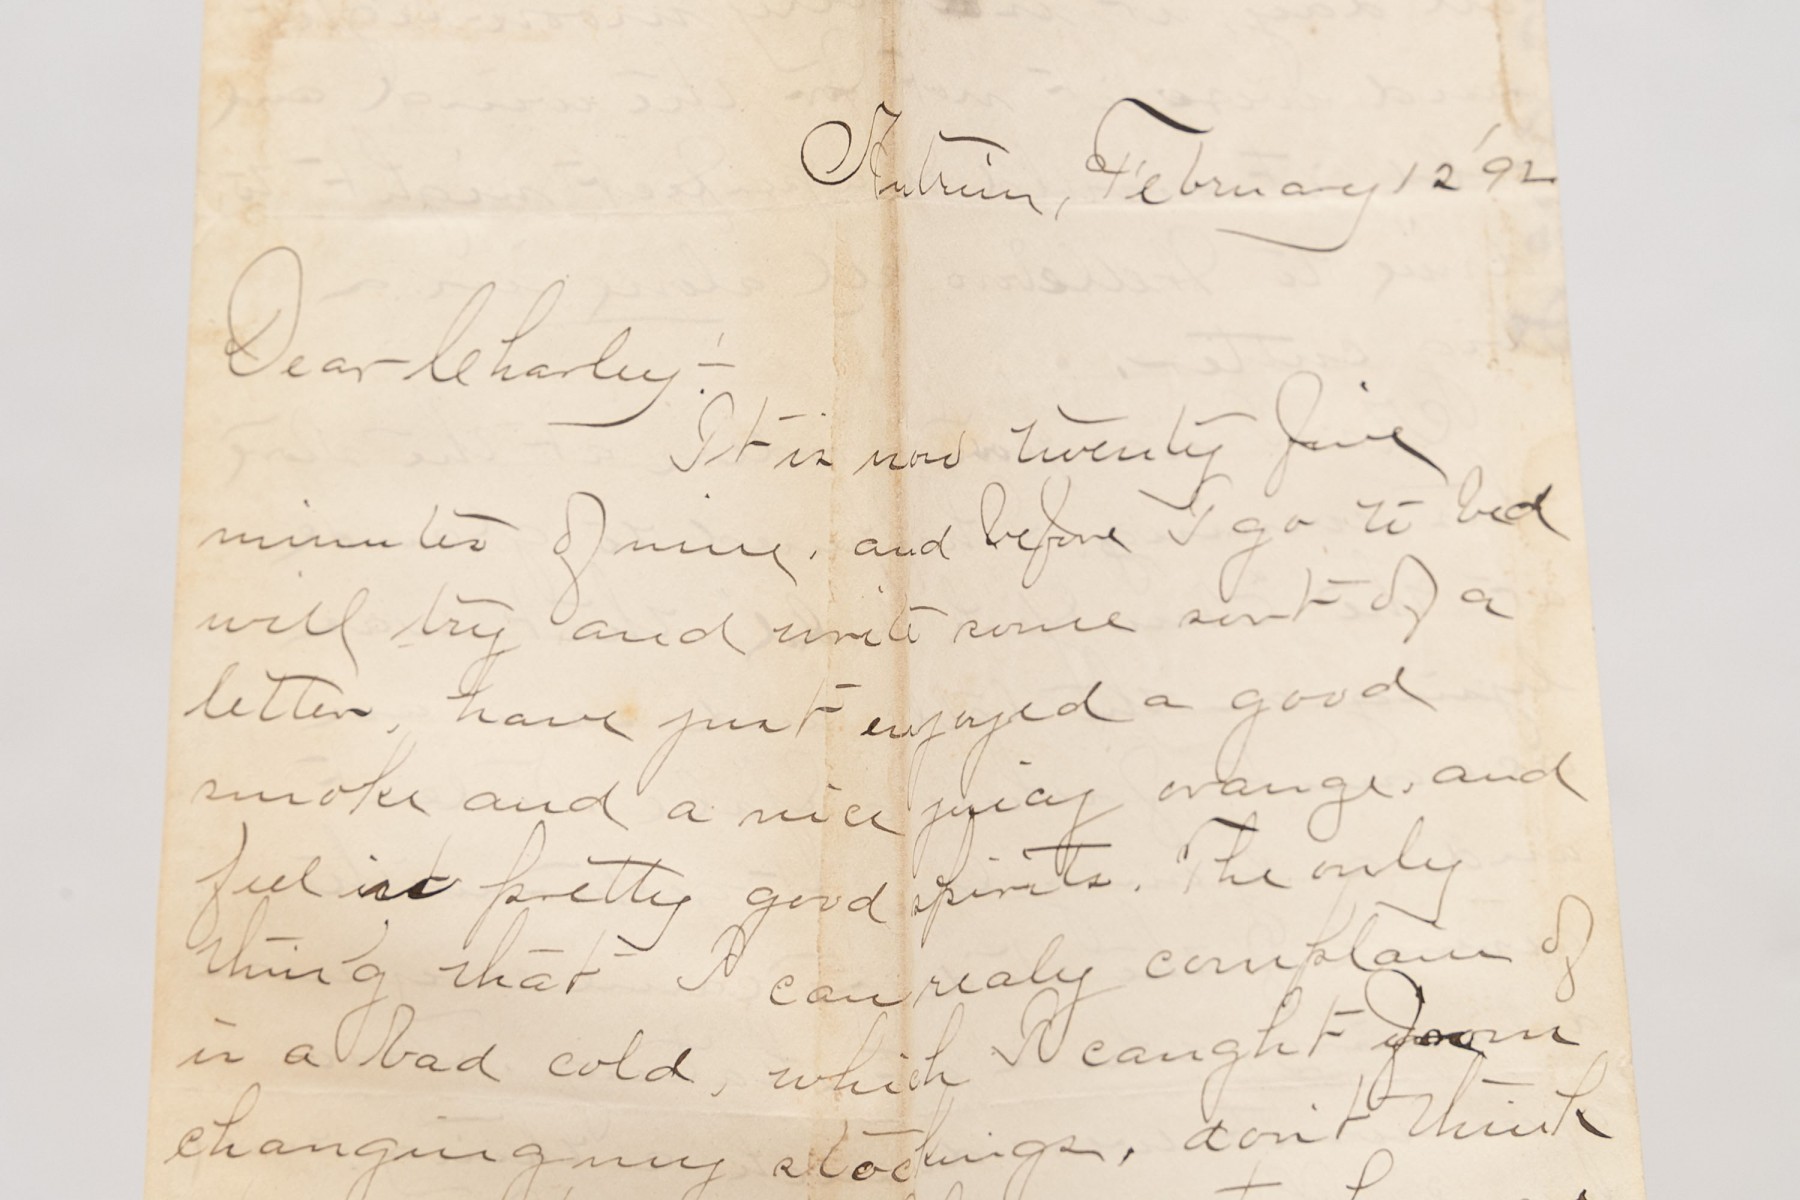 Antrim, February 12 '92
Dear Charley:-
It is now twenty five
minutes of nine, and before I go to bed
will try and write some sort of a
letter, have just enjoyed a good
smoke and a nice juicy orange, and
feel in pretty good spirits. The only
thing that I can realy complain of
is a bad cold, which I caught from
changing my stockings, don't think